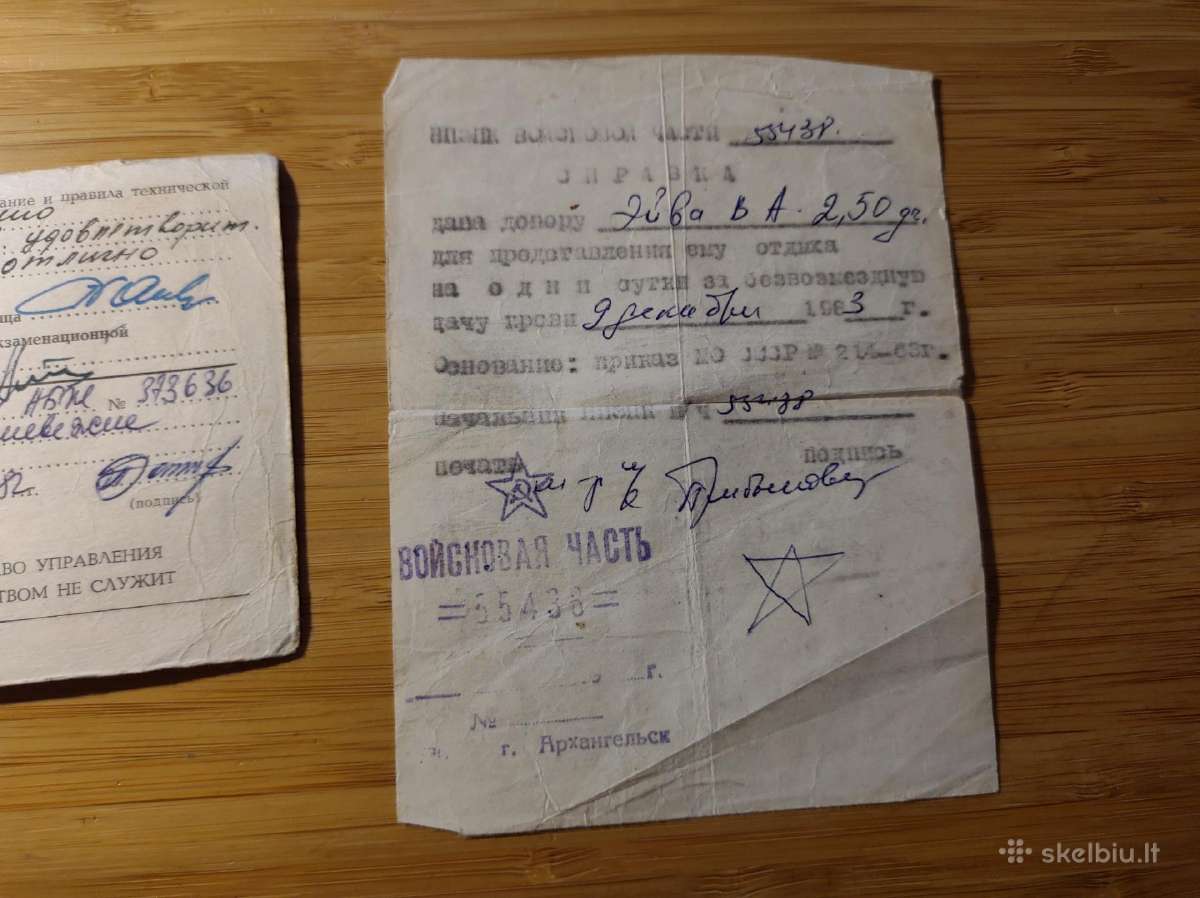 ание и правила технической
удовлетворит.
отлично
ища
кзаменационной
АБЖ № 373636
г.
(подпись)
ВО УПРАВЛЕНИЯ
СТВОМ НЕ СЛУЖИТ
части 55438.
СПРАВКА
дана донору Эйва В А. 2,50 дг.
для предоставления ему отдыха
на о д н и сутки за безвозмездную
дачу крови 9 декабря 1983 г.
Основание: приказ МО СССР № 214-63г.
Начальник в/ч 55438
печать подпись
ВОЙСКОВАЯ ЧАСТЬ
=55438=
г.
№
г. Архангельск
skelbiu.lt